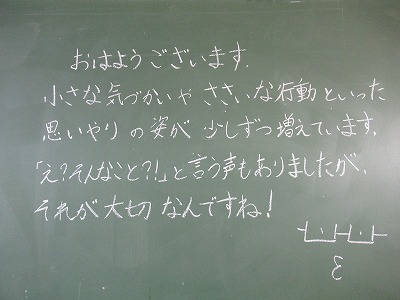 おはようございます.
小さな気づかいや ささいな行動といった
思いやり の姿が 少しずつ増えています.
「え?そんなこと?!」と言う声もありましたが、
それが大切なんですね!